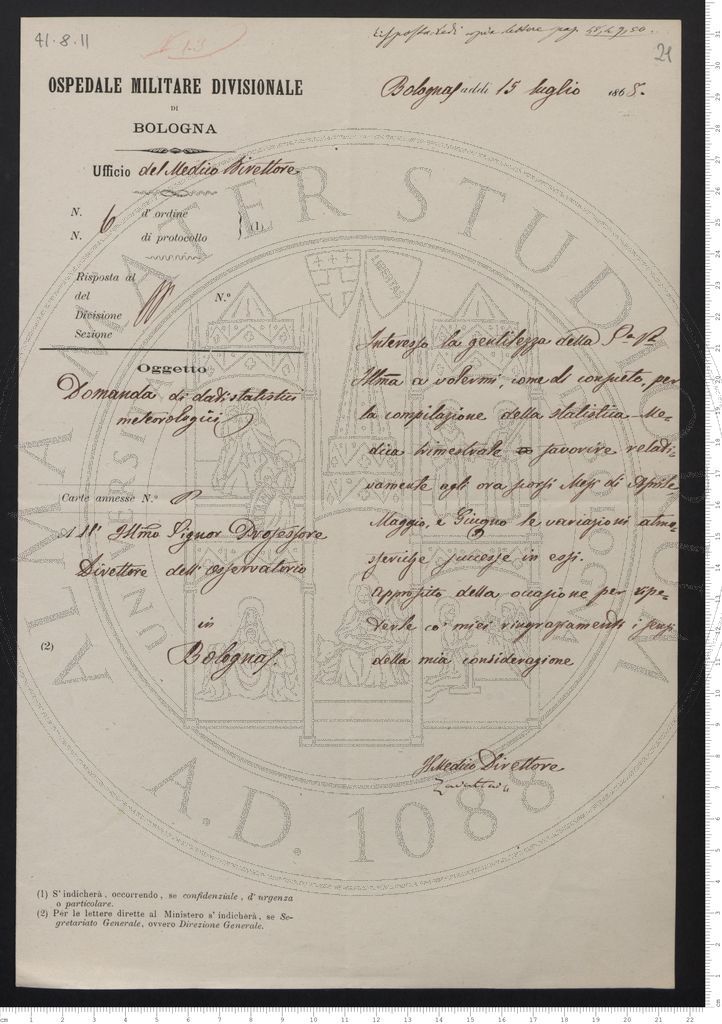 41.8.11
Risposta vedi copia lettere pag. 48, 49, 50.
21
OSPEDALE MILITARE DIVISIONALE
DI
BOLOGNA
Bologna addì 15 luglio 1868.
Ufficio del Medico Direttore
N. 6 d'ordine
N. di protocollo (1)
Risposta al
del
Divisione N.º
Sezione
Oggetto
Domanda di dati statistici
meteorologici
Carte annesse N.º
All' Illmo Signor Professore
Direttore dell'osservatorio
in
(2)
Bologna.
Interesso la gentilezza della
Illma a volermi, come di consueto, per
la compilazione della statistica Me-
dica trimestrale favorire relati-
vamente agli ora scorsi Mesi di Aprile
Maggio, e Giugno le variazioni atmo-
sferiche successe in essi.
Approfitto della occasione per ripe-
terle co' miei ringraziamenti i sensi
della mia considerazione
Il Medico Direttore
(1) S'indicherà, occorrendo, se confidenziale, d'urgenza
o particolare.
(2) Per le lettere dirette al Ministero s'indicherà, se Se-
gretariato Generale, ovvero Direzione Generale.
ALMA MATER STUDIORUM
A.D. 1088
LIBERTAS